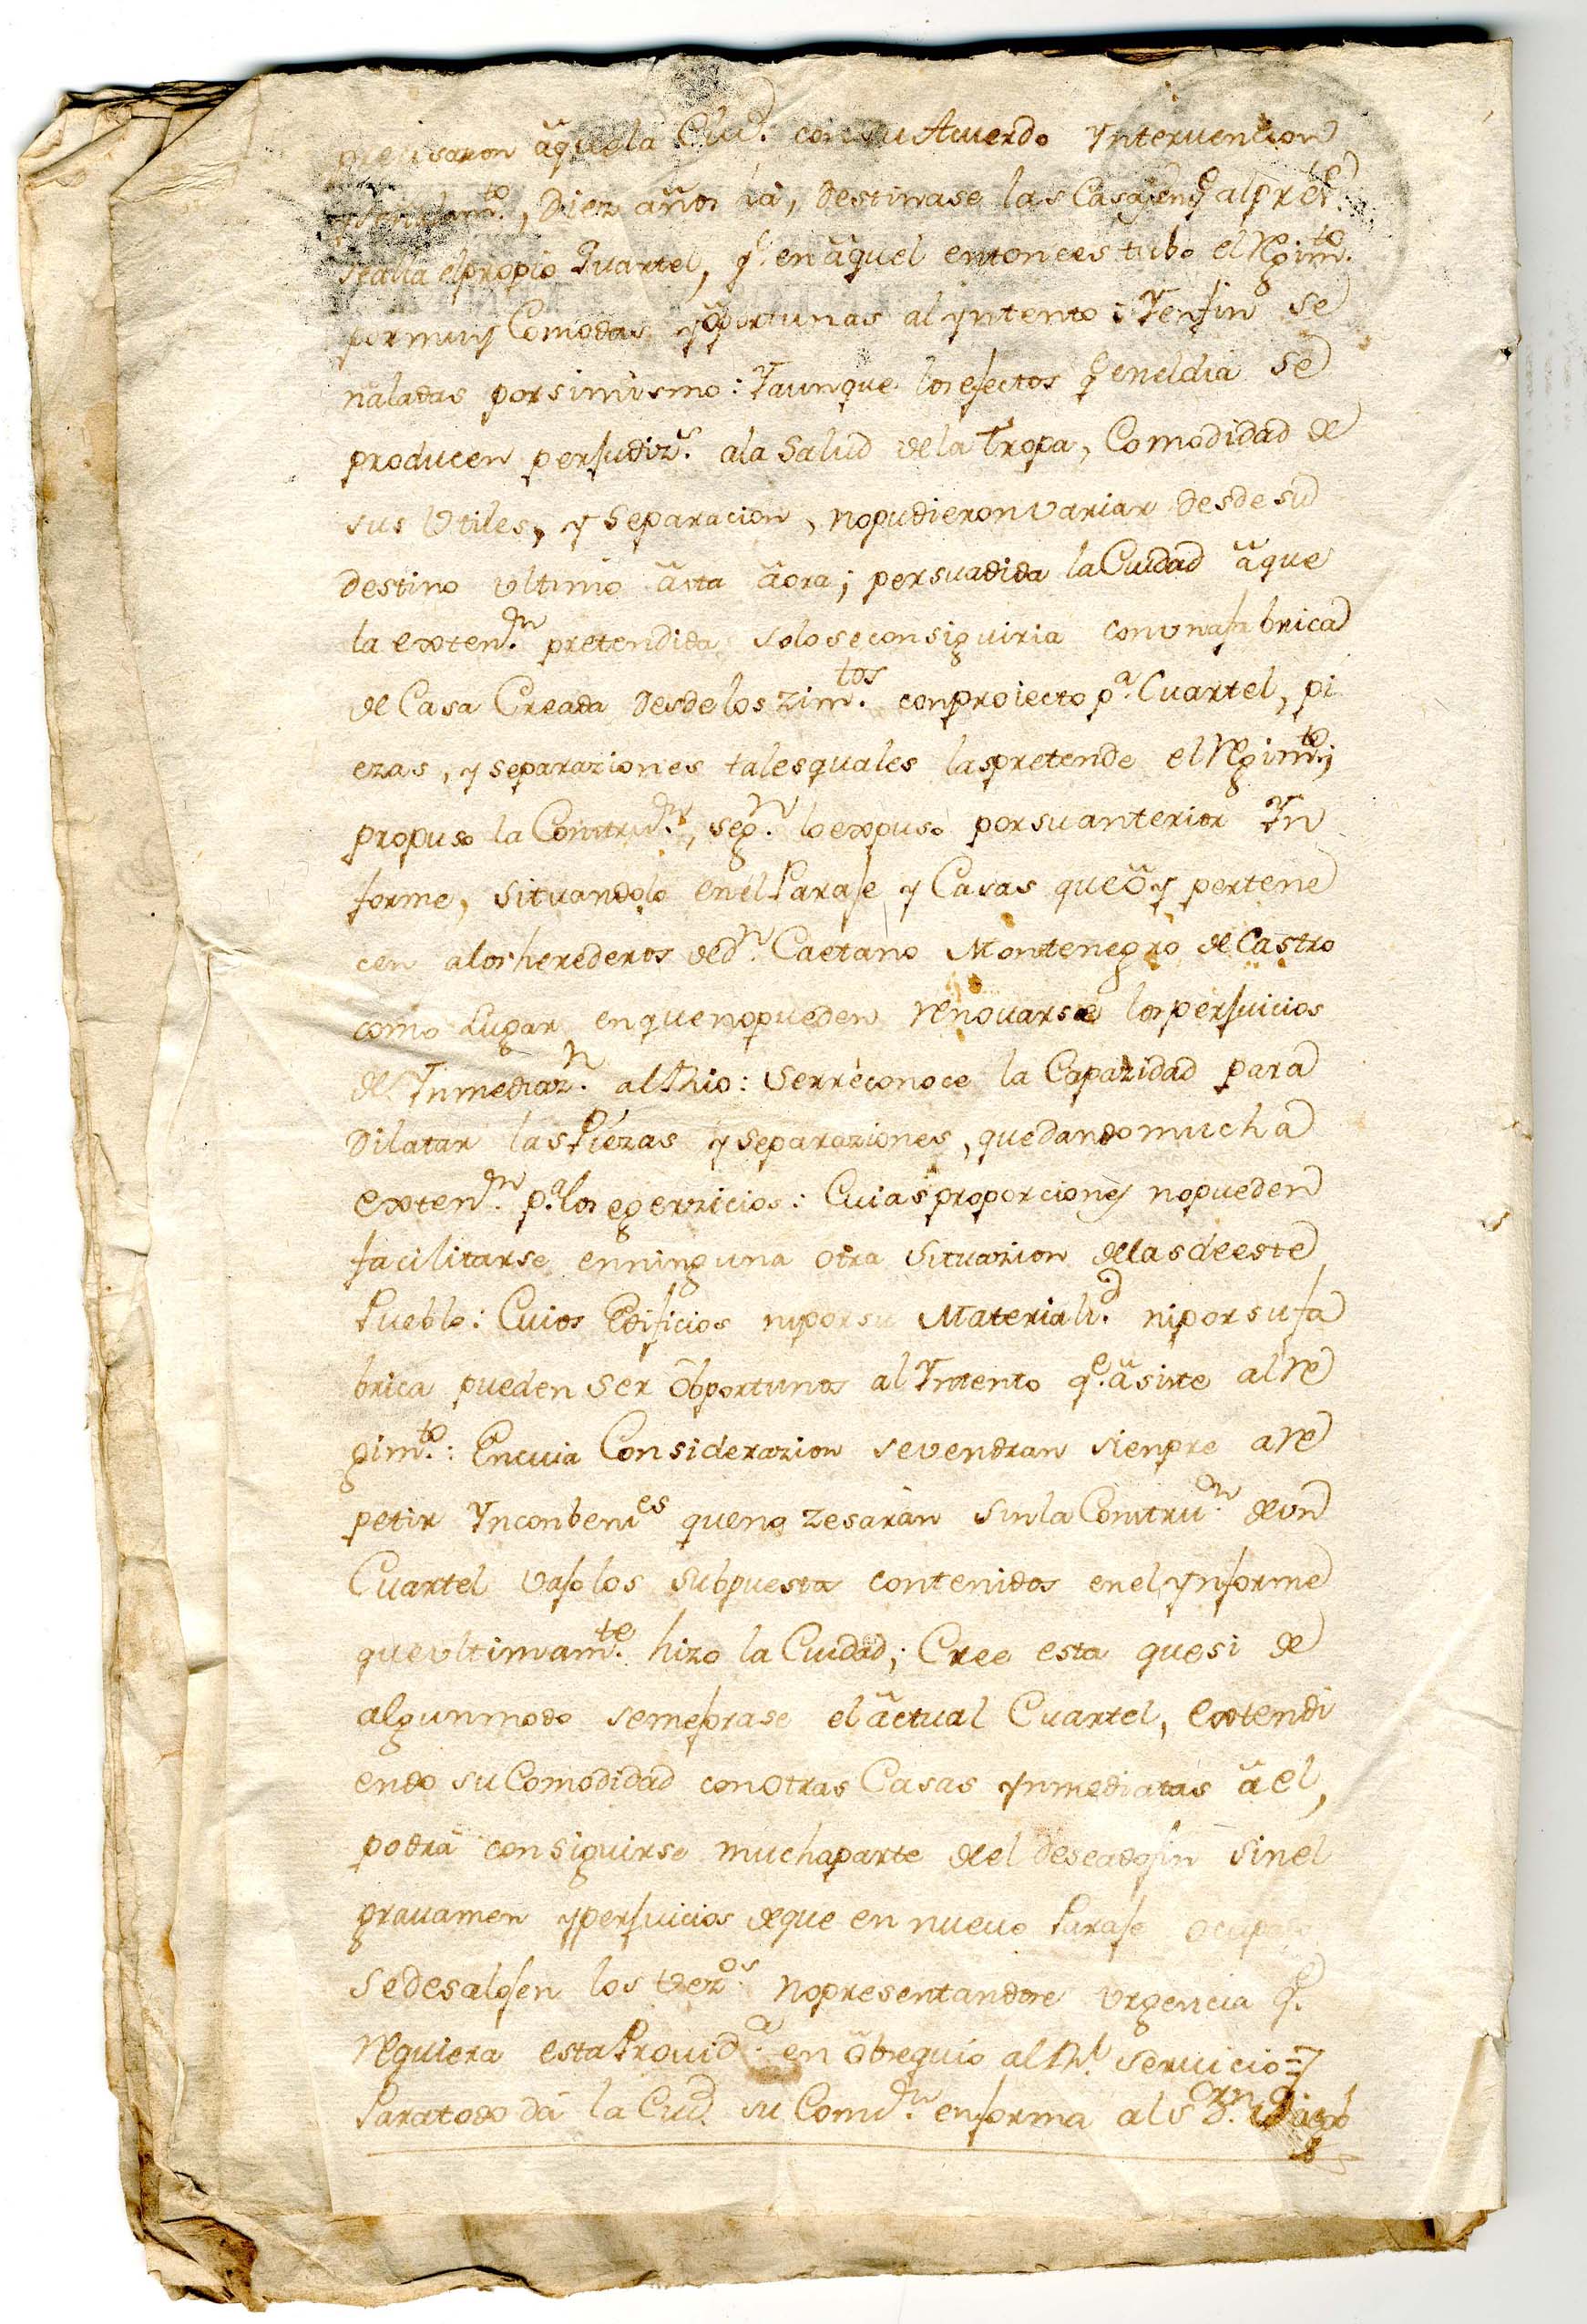 precisaron äque la Ciud. con su Acuerdo Yntervencion
Diez años há, Destinase las Casas enq.e al pres.te
se alla el propio Quartel, q.e en äquel entonces tubo el Rgim.to
por muy Comodas, y oportunas al yntento: Y en fin se
ñaladas por si mismo: Y aunque los efectos q.e en el dia se
producen perjudiz.s a la Salud de la Tropa, Comodidad de
sus Utiles, y Separacion, no pudieron variar Desde su
Destino ultimo ästa äora; persuadida la Ciudad ä que
la exten.on pretendida solo se consiguiria con una fabrica
de Casa Creada Desde los zim.tos con proiecto p.a Cuartel, pi
ezas, y separaziones tales quales las pretende el Rgim.to;
propuso la Construc.on, seg.n lo expuso por su anterior Yn
forme, situandolo en el Paraje y Casas que öy pertene
cen a los herederos de d.n Caetano Montenegro de Castro
como Lugar en que no pueden renovarse los perjuicios
de Ynmediaz.n al Rio: Se rreconoce la Capazidad para
Dilatar las Piezas y separaziones, quedando mucha
exten.on p.a los egerzicios: Cuias proporciones no pueden
facilitarse en ninguna otra Situazion de las de este
Pueblo: Cuios Edificios ni por su Materiali.d ni por su fa
brica pueden ser öbportunos al Yntento q.e äsiste al Re
gim.to: En cuia Considerazion se vendran sienpre a re
petir Ynconbeni.es que no zesarán sin la Constru.on de un
Cuartel vajo los subpuestos contenidos en el ynforme
que ultimam.te hizo la Ciudad; Cree esta que si de
algun modo se mejorase el äctual Cuartel, extendi
endo su Comodidad con otras Casas ynmediatas ä el,
podrá consiguirse mucha parte de el deseado fin sin el
gravamen y perjuicios de que en nuevo Paraje
se desalojen los vez.os no presentandose urgencia q.e
requiera esta Provid.a en öbsequio al R.l servicio =
Para todo dá la Ciud. su Comis.on en forma al S.or